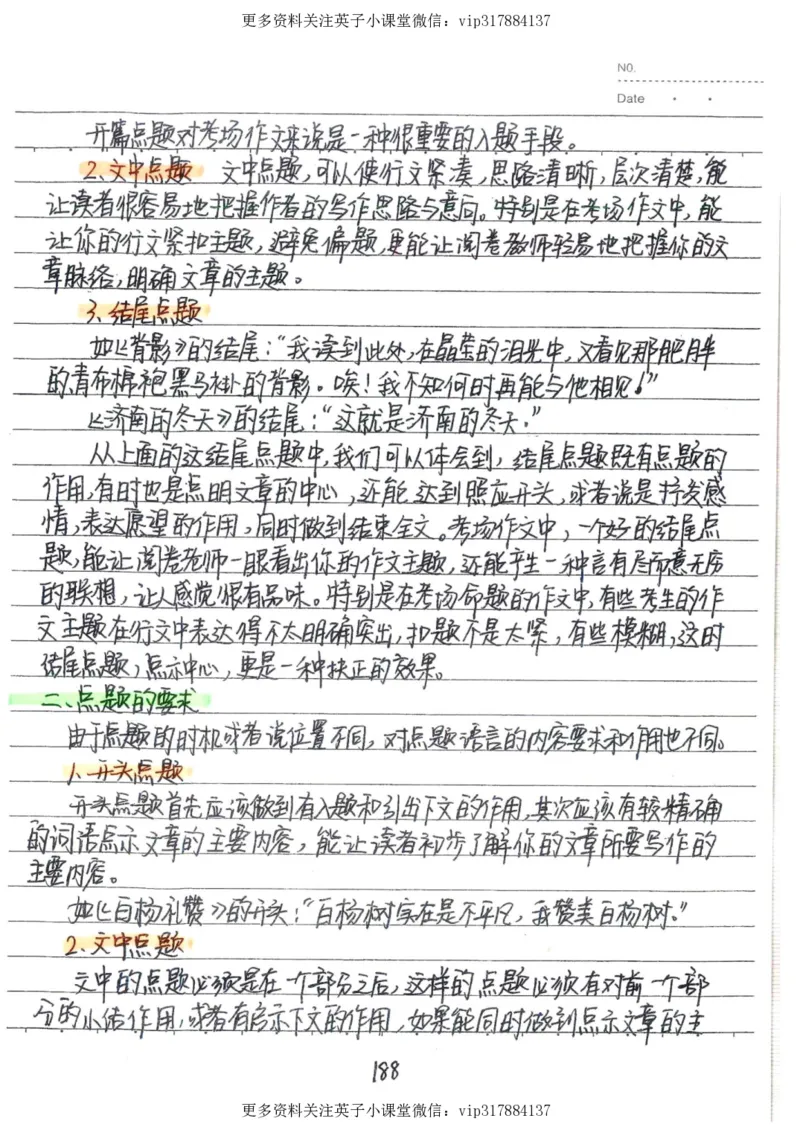 更多资料关注英子小课堂微信：vip317884137
N0.
Date
开篇点题对考场作文来说是一种很重要的入题手段。
2、文中点题 文中点题，可以使行文紧凑，思路清晰，层次清楚，能
让读者很容易地把握作者的写作思路与意向。特别是在考场作文中，能
让你的行文紧扣主题，避免偏题，更能让阅卷教师轻易地把握你的文
章脉络，明确文章的主题。
3、结尾点题
如《背影》的结尾：“我读到此处，在晶莹的泪光中，又看见那肥胖
的青布棉袍黑马褂的背影。唉！我不知何时再能与他相见！”
《济南的冬天》的结尾：“这就是济南的冬天。”
从上面的这结尾点题中，我们可以体会到，结尾点题既有点题的
作用，有时也是点明文章的中心，还能达到照应开头，或者说是抒发感
情，表达愿望的作用，同时做到结束全文。考场作文中，一个好的结尾点
题，能让阅卷老师一眼看出你的作文主题，还能产生一种言有尽而意无穷
的联想，让人感觉很有品味。特别是在考场命题的作文中，有些考生的作
文主题在行文中表达得不太明确突出，扣题不是太紧，有些模糊，这时
结尾点题，点示中心，更是一种扶正的效果。
二、点题的要求
由于点题的时机或者说位置不同，对点题语言的内容要求和作用也不同。
1、开头点题
开头点题首先应该做到有入题和引出下文的作用，其次应该有较精确
的词语点示文章的主要内容，能让读者初步了解你的文章所要写作的
主要内容。
如《白杨礼赞》的开头：“白杨树实在是不平凡，我赞美白杨树。”
2、文中点题
文中的点题必须是在一个部分之后，这样的点题必须有对前一个部
分的小结作用，或者有启示下文的作用，如果能同时做到点示文章的主
188
更多资料关注英子小课堂微信：vip317884137